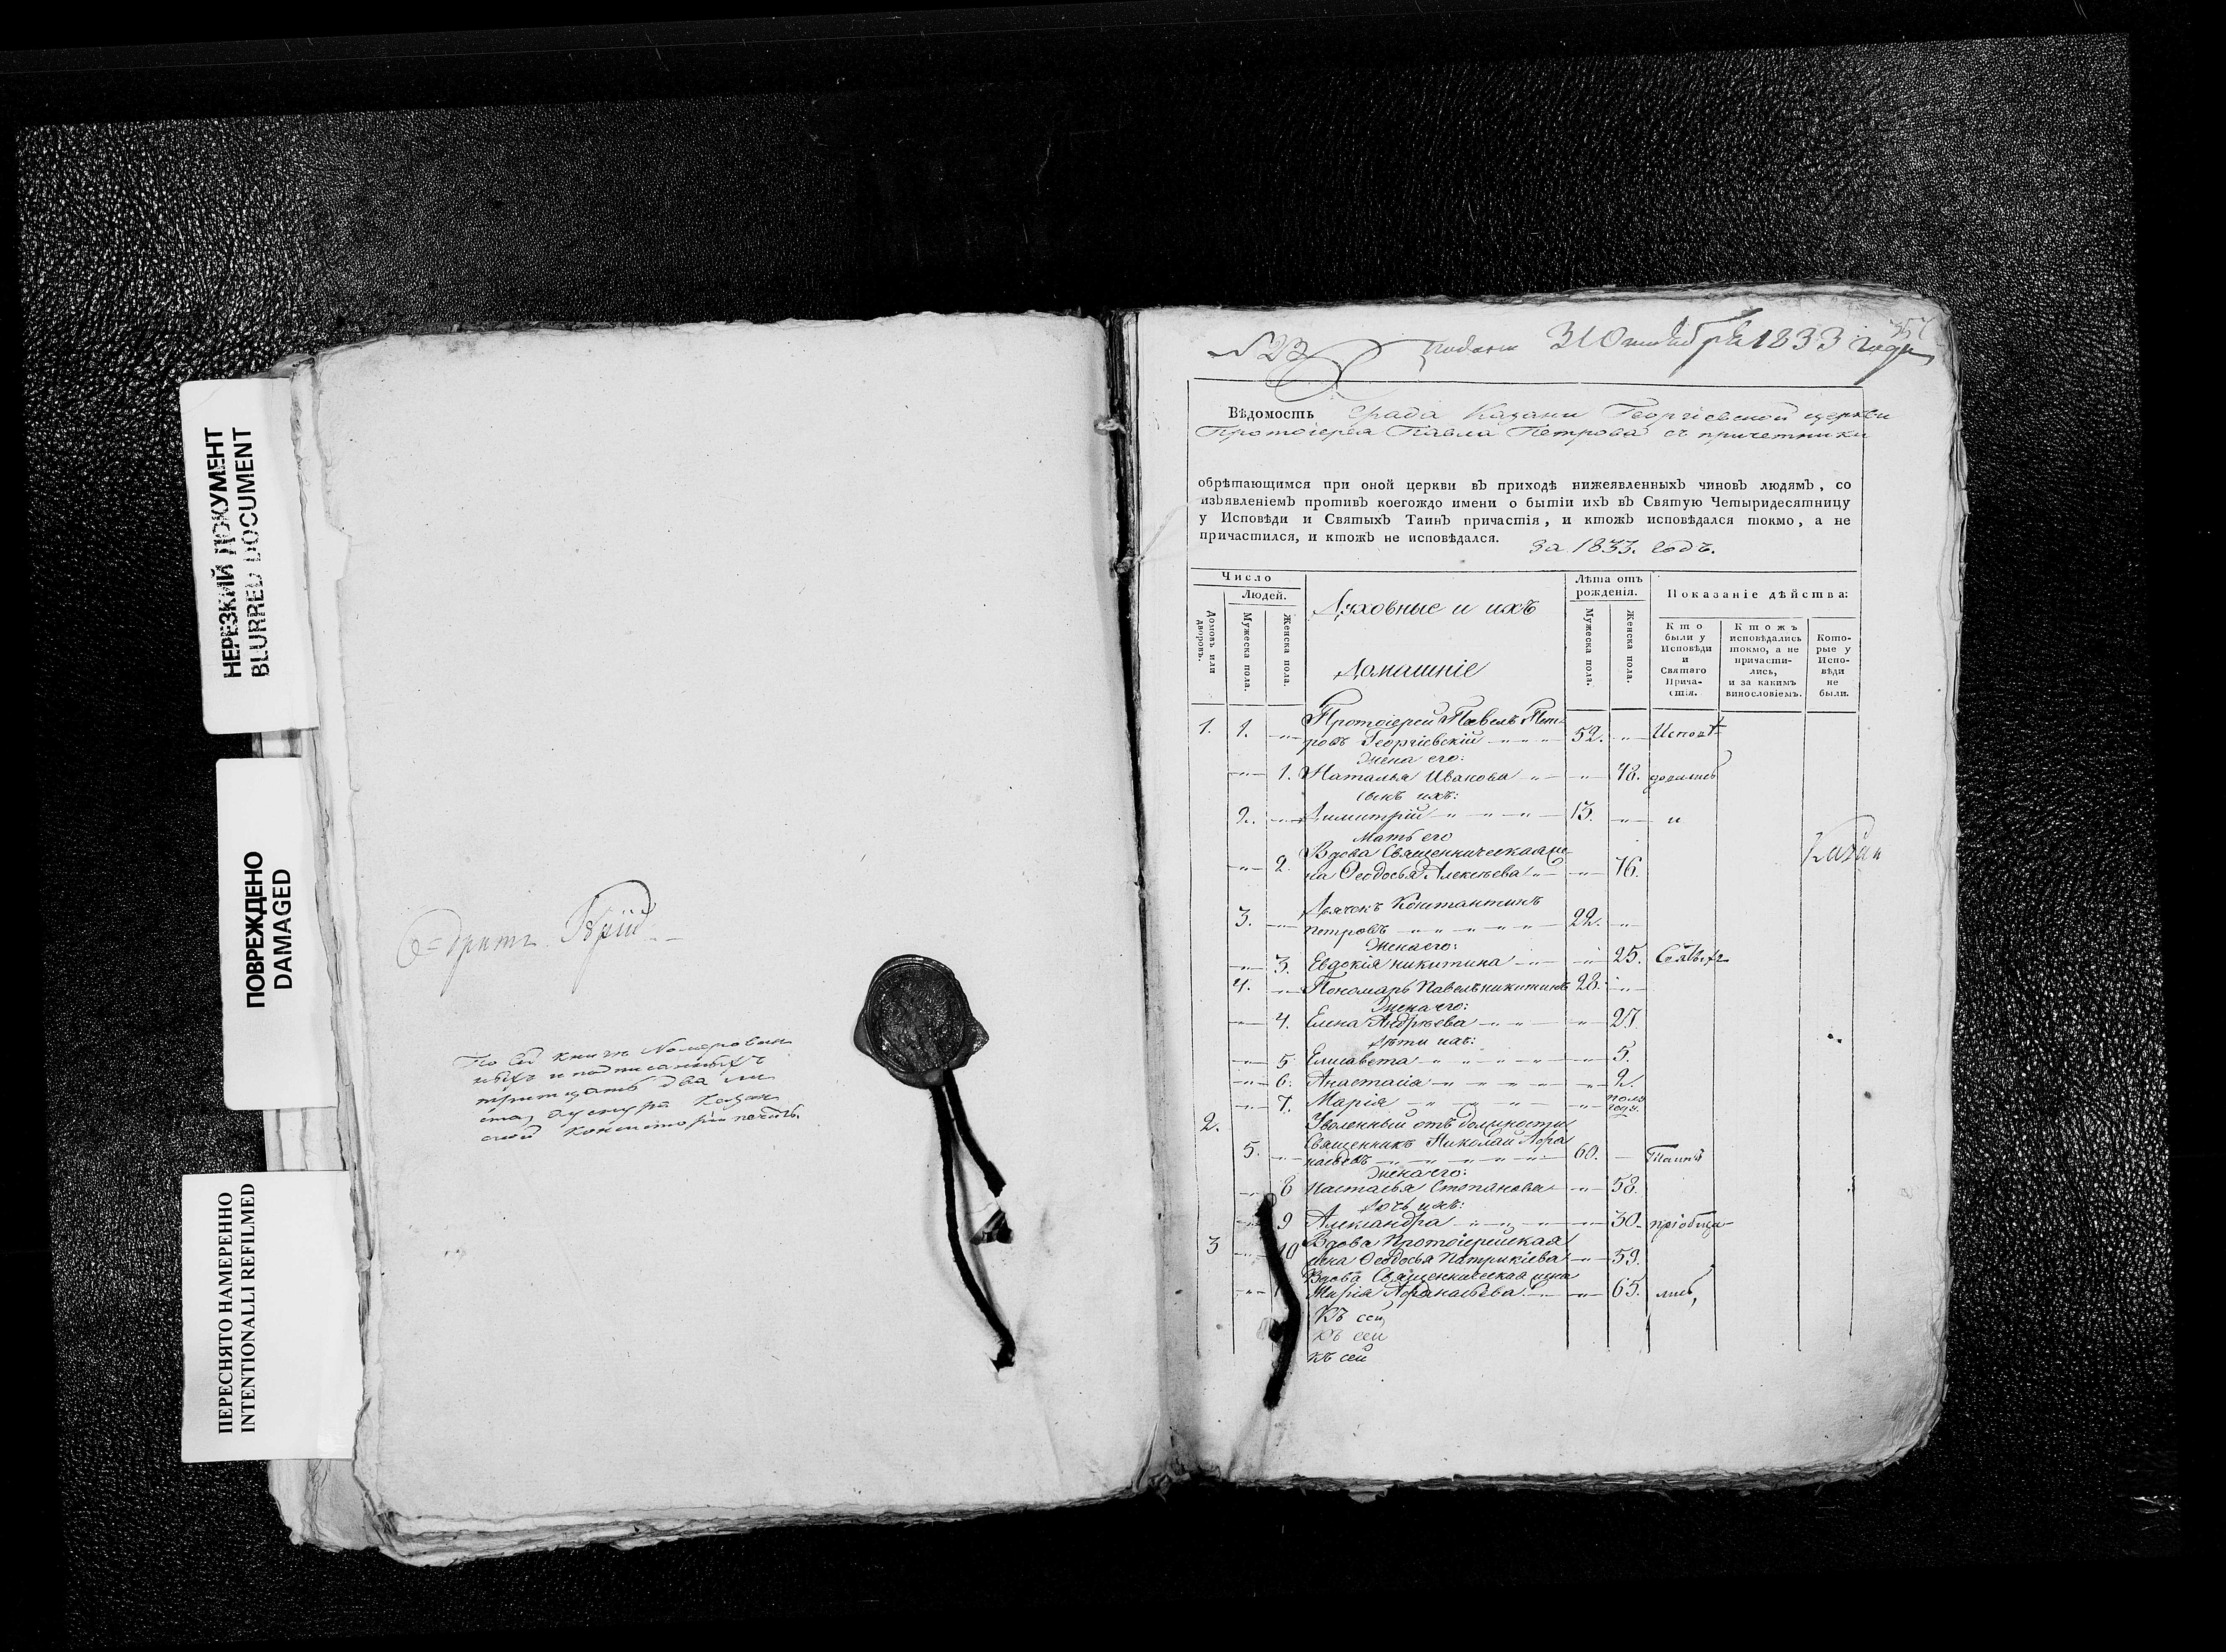 НЕРЕЗКИЙ ДОКУМЕНТ
BLURRED DOCUMENT
ПОВРЕЖДЕНО
DAMAGED
ПЕРЕСНЯТО НАМЕРЕННО
INTENTIONALLI REFILMED
По сей книгѣ Номерован
ныхъ и подписанныхъ
тритцать два ли
ста,
Казан
ской консисторіи печать
№ 23
Подана 31 Октября 1833 года
Вѣдомость Града Казани Георгіевской церкви
Протоіерея Павла Петрова съ причетники
обрѣтающимся при оной церкви въ приходѣ нижеявленныхъ чиновъ людямъ, со
изъявленіемъ противъ коегождо имени о бытіи ихъ въ Святую Четыридесятницу
у Исповѣди и Святыхъ Таинъ причастія, и ктожъ исповѣдался токмо, а не
причастился, и ктожъ не исповѣдался.
За 1833. годъ.
Число
Людей.
Домовъ или дворовъ.
Мужеска пола.
Женска пола.
Духовные и ихъ
Домашніе
Лѣта отъ рожденія.
Мужеска пола.
Женска пола.
Показаніе дѣйства:
Кто были у Исповѣди и Святаго Прича-стія.
Ктожъ исповѣдались токмо, а не причасти-лись, и за какимъ винословіемъ.
Кото-рые у Испо-вѣди не были.
1. 1. Протоіерей Павелъ Пет
ровъ Георгіевскій 52. Испов
Жена его:
1. Наталья Иванова 48. дались
Сынъ ихъ:
2. Димитрій 13. и
Мать его
Вдова Священническая же
2. на Ѳеодосья Алексѣева 76.
Казан
Дьячокъ Константинъ
3. Петровъ 22.
Жена его:
3. Евдокія Никитина 25. Святыхъ
4. Пономарь Павелъ Никитинъ 28.
Жена его:
4. Елена Андрѣева 27
Дѣти ихъ:
5 Елисавета 5.
6. Анастасія 2.
7. Марія полъ году.
2. Уволенный отъ должности
5. Священникъ Николай Афа
насьевъ 60. Таинъ
Жена его:
8 Настасья Степанова 58.
Дочь ихъ:
9 Александра 30. пріобща
3 10 Вдова Протоіерейская
жена Ѳеодосья Патрикіева 59.
Вдова Священническая жена
Марія Афанасьева 65. лись,
Къ сей
къ сей
къ сей